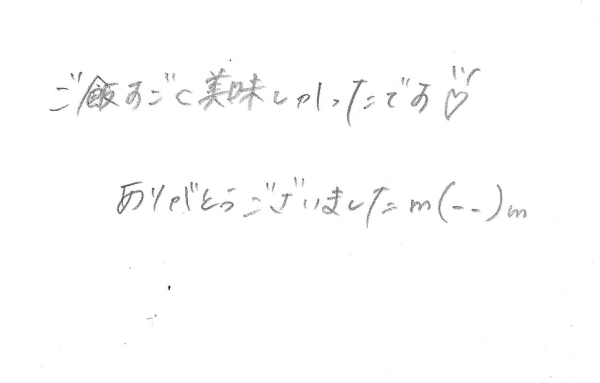 ご飯すごく美味しかったです♡
ありがとうございましたm(--)m